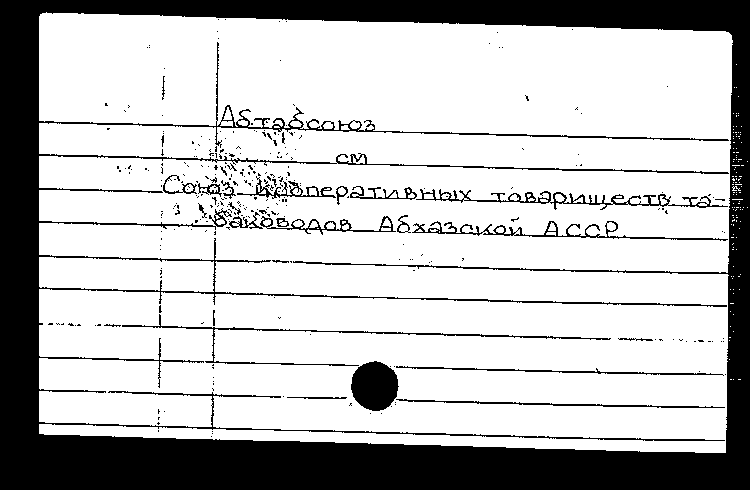 Абтабсоюз
см
Союз кооперативных товариществ та-
баководов Абхазской АССР.